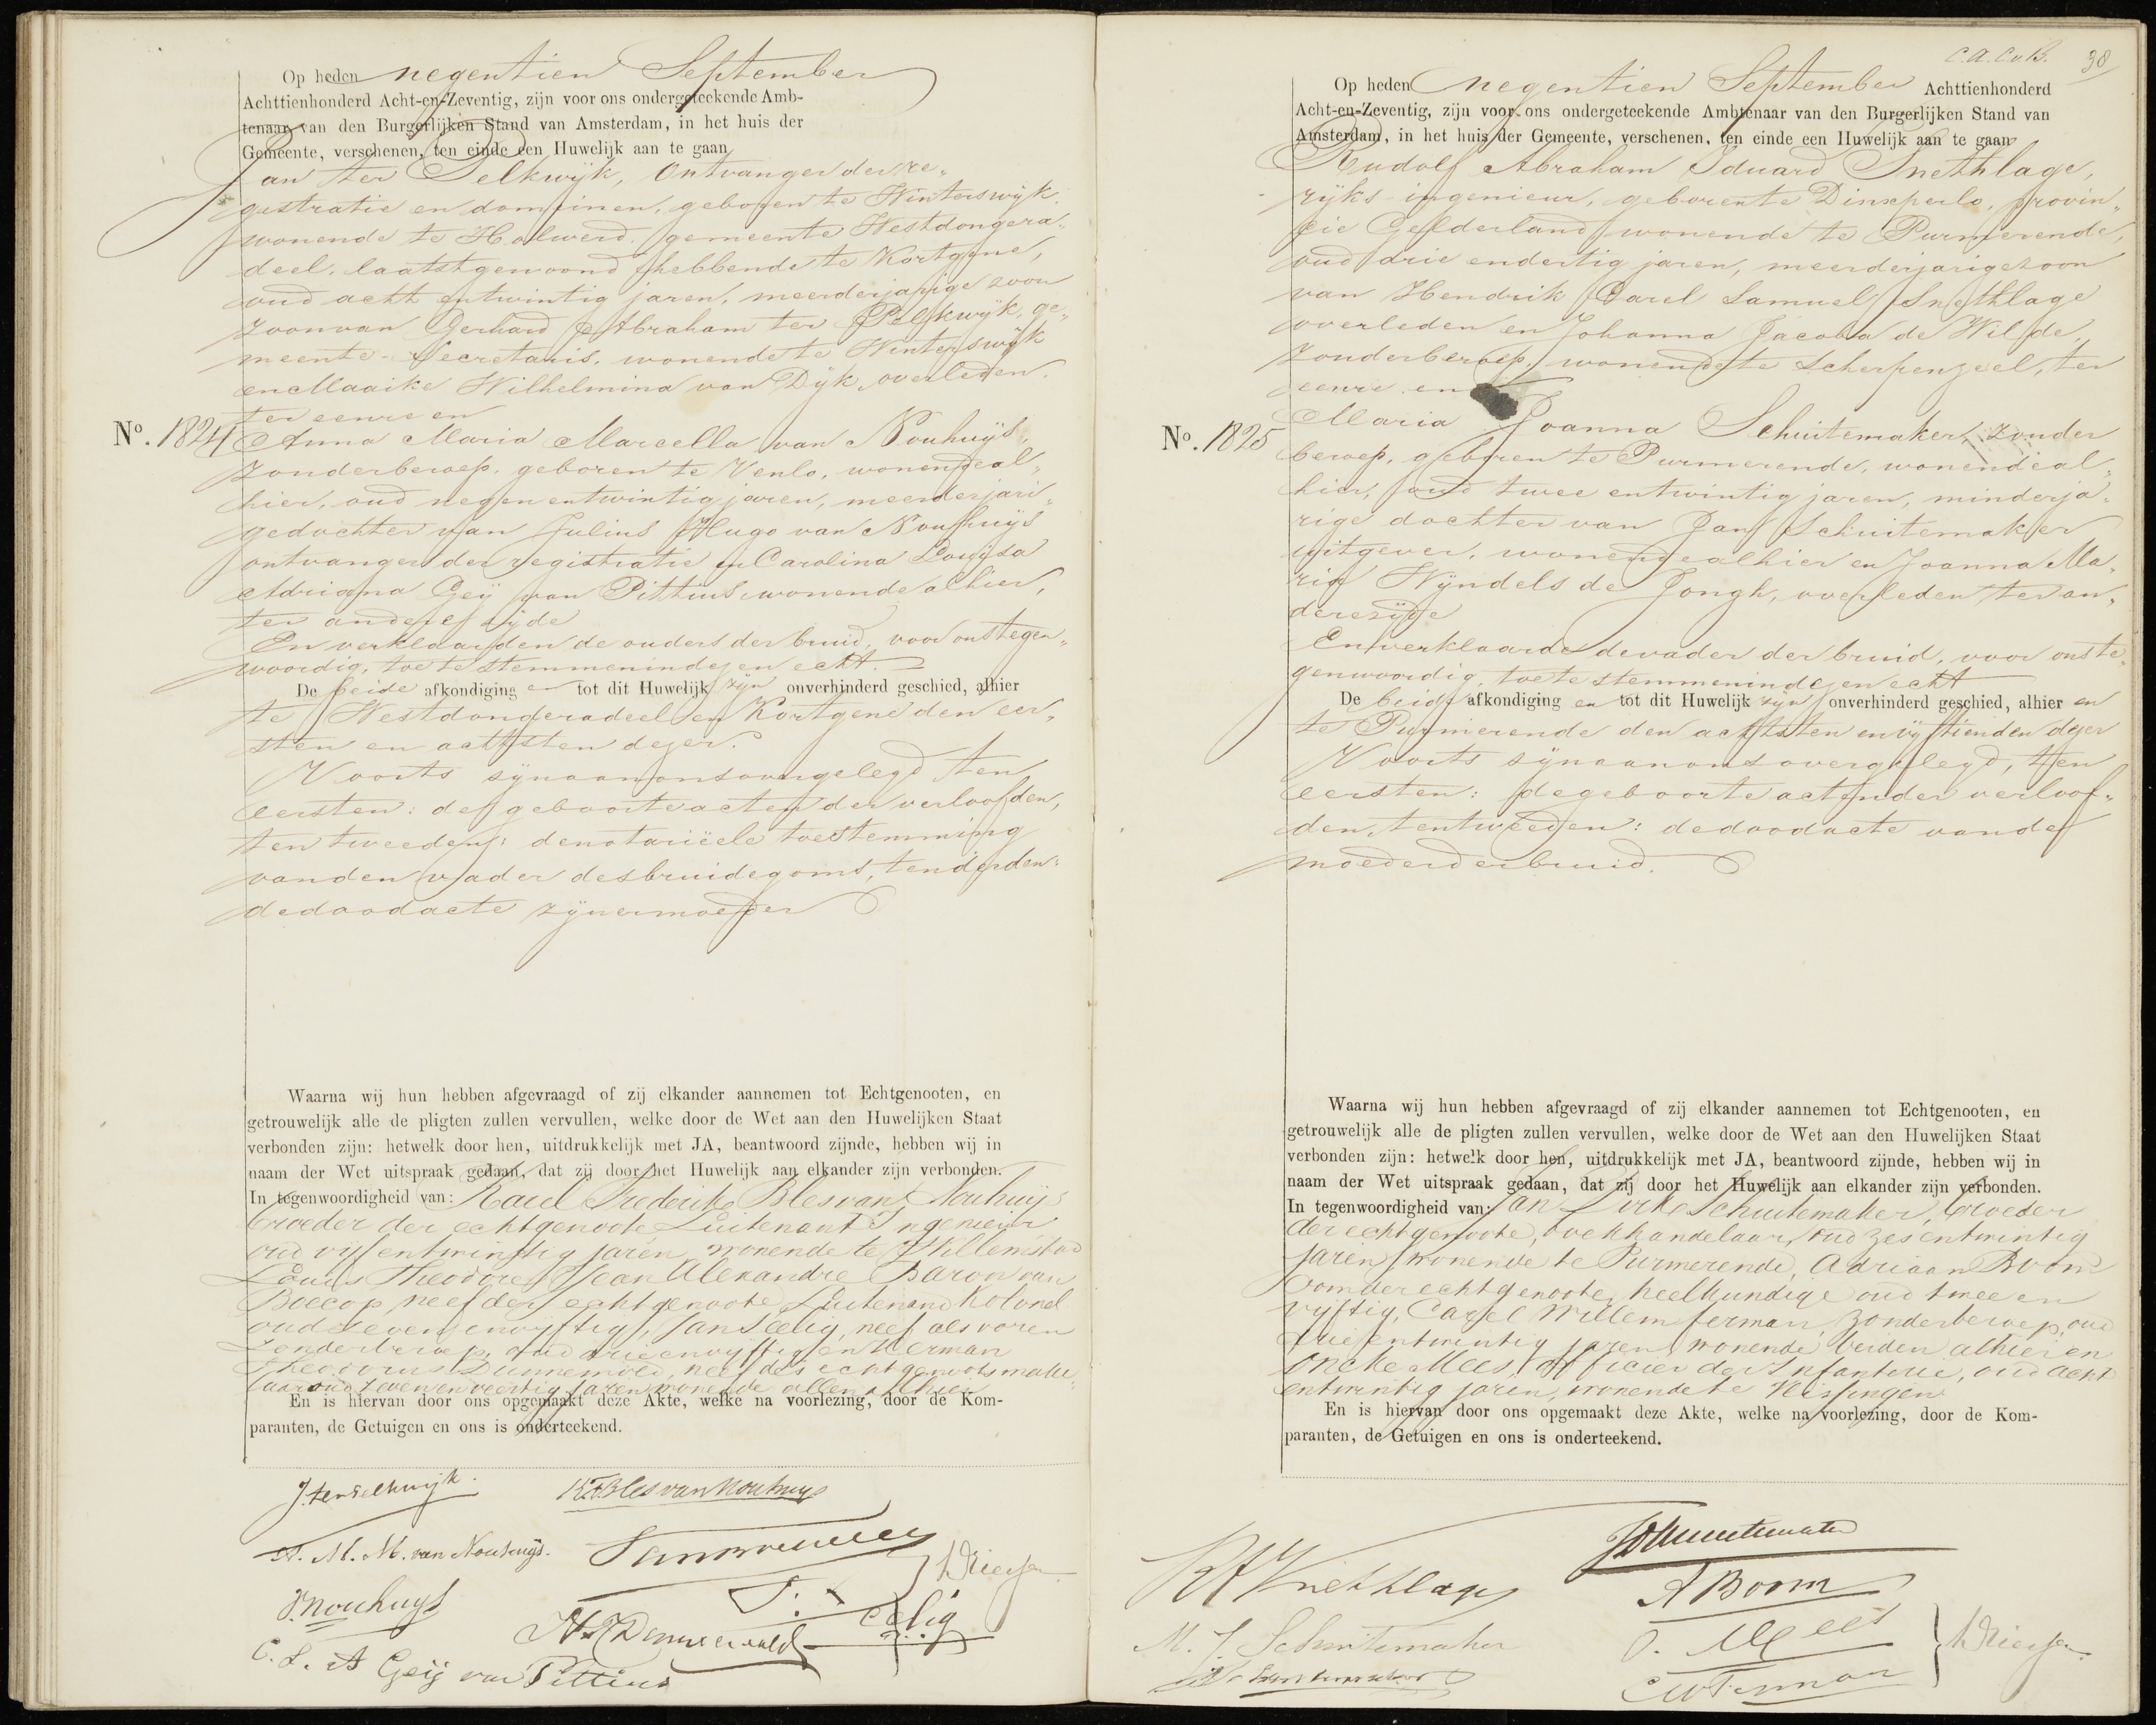 Op heden negentien September
Achttienhonderd Acht-en-Zeventig, zijn voor ons ondergeteekende Amb-
tenaar van den Burgerlijken Stand van Amsterdam, in het huis der
Gemeente, verschenen, ten einde een Huwelijk aan te gaan
Jan ter Pelkwijk, Ontvanger der re„
gistratie en domeinen, geboren te Winterswijk,
wonende te Holwerd, gemeente Westdongera„
deel, laatst gewoond hebbende te Kortgene,
oud acht entwintig jaren, meerderjarige zoon
zoon van Gerhard Abraham ter Pelkwijk, ge„
meente-Secretaris, wonende te Winterswijk
en Maaike Wilhelmina van Dijk, overleden.
ter eenre en
No. 1824 Anna Maria Marcella van Nouhuijs,
zonder beroep, geboren te Venlo, wonende al„
hier, oud negen entwintig jaren, meerderjari„
ge dochter van Julius Hugo van Nouhuijs
ontvanger der registratie en Carolina Louisa
Adriana Geij van Pittius wonende alhier,
ter andere zijde
En verklaarden de ouders der bruid, voor ons tegen„
woordig, toe te stemmen in dezen echt.
De beide afkondiging en tot dit Huwelijk zijn onverhinderd geschied, alhier
te Westdongeradeel en Kortgene den eer„
sten en achtsten dezer.
Voorts zijn aan ons overgelegd ten
eersten: de geboorteacten der verloofden,
ten tweeden: de notariëele toestemming
van den vader des bruidegoms, ten derden:
de doodacte zijner moeder
Waarna wij hun hebben afgevraagd of zij elkander aannemen tot Echtgenooten, en
getrouwelijk alle de pligten zullen vervullen, welke door de Wet aan den Huwelijken Staat
verbonden zijn: hetwelk door hen, uitdrukkelijk met JA, beantwoord zijnde, hebben wij in
naam der Wet uitspraak gedaan, dat zij door het Huwelijk aan elkander zijn verbonden.
In tegenwoordigheid van: Karel Frederik Bles van Nouhuijs
broeder der echtgenoote Luitenant Ingenieur
oud vijf entwintig jaren, wonende te Willemstad
Louis Theodore Jean Alexandre Baron van
Boecop neef der echtgenoote Luitenant Kolonel
oud zeven en vijftig, Jan Seelig, neef als voren
zonder beroep, oud drie en vijftig en Herman
Theodorus Dunnewold, neef des echtgenoots make„
laar oud zeven en veertig jaren wonende allen alhier
En is hiervan door ons opgemaakt deze Akte, welke na voorlezing, door de Kom-
paranten, de Getuigen en ons is onderteekend.
J. ter Pelkwijk. K.F. Bles van Nouhuys
A. M. M. van Nouhuijs.
J. Nouhuys
C. L. A Geij van Pittius
C.A.C.v.B. 38
Op heden negentien September Achttienhonderd
Acht-en-Zeventig, zijn voor ons ondergeteekende Ambtenaar van den Burgerlijken Stand van
Amsterdam, in het huis der Gemeente, verschenen, ten einde een Huwelijk aan te gaan
Rudolf Abraham Eduard Snethlage,
rijks-ingenieur, geboren te Dinxperlo, provin„
cie Gelderland, wonende te Purmerende,
oud drie endertig jaren, meerderjarige zoon
van Hendrik Carel Samuel Snethlage
overleden en Johanna Jacoba de Wilde,
zonder beroep, wonende te Scherpenzeel, ter
eenre en
No. 1825 Maria Joanna Schuitemaker, zonder
beroep, geboren te Purmerende, wonende al„
hier, oud twee entwintig jaren, minderja„
rige dochter van Jan Schuitemaker
uitgever, wonende alhier en Joanna Ma„
ria Wijndels de Jongh, overleden, ter an„
derezijde
En verklaarde de vader der bruid, voor ons te„
genwoordig, toe te stemmen in dezen echt
De beide afkondiging en tot dit Huwelijk zijn onverhinderd geschied, alhier en
te Purmerende den achtsten en vijftienden dezer
Voorts zijn aan ons overgelegd, ten
eersten: de geboorteacten der verloof„
den, ten tweeden: de doodacte van de
moeder der bruid.
Waarna wij hun hebben afgevraagd of zij elkander aannemen tot Echtgenooten, en
getrouwelijk alle de pligten zullen vervullen, welke door de Wet aan den Huwelijken Staat
verbonden zijn: hetwelk door hen, uitdrukkelijk met JA, beantwoord zijnde, hebben wij in
naam der Wet uitspraak gedaan, dat zij door het Huwelijk aan elkander zijn verbonden.
In tegenwoordigheid van: Jan Schuitemaker, broeder
der echtgenoote, boekhandelaar, oud zes entwintig
jaren, wonende te Purmerende, Adriaan Boom
oom der echtgenoote, heelkundige oud twee en
vijftig, Carel Willem Ferman, zonder beroep, oud
drie entwintig jaren, wonende beiden alhier en
Oncko Mees, Officier der Infanterie, oud acht
entwintig jaren, wonende te Vlissingen
En is hiervan door ons opgemaakt deze Akte, welke na voorlezing, door de Kom-
paranten, de Getuigen en ons is onderteekend.
RAE Snethlage
A Boom
M. J. Schuitemaker
O. Mees
CW Ferman